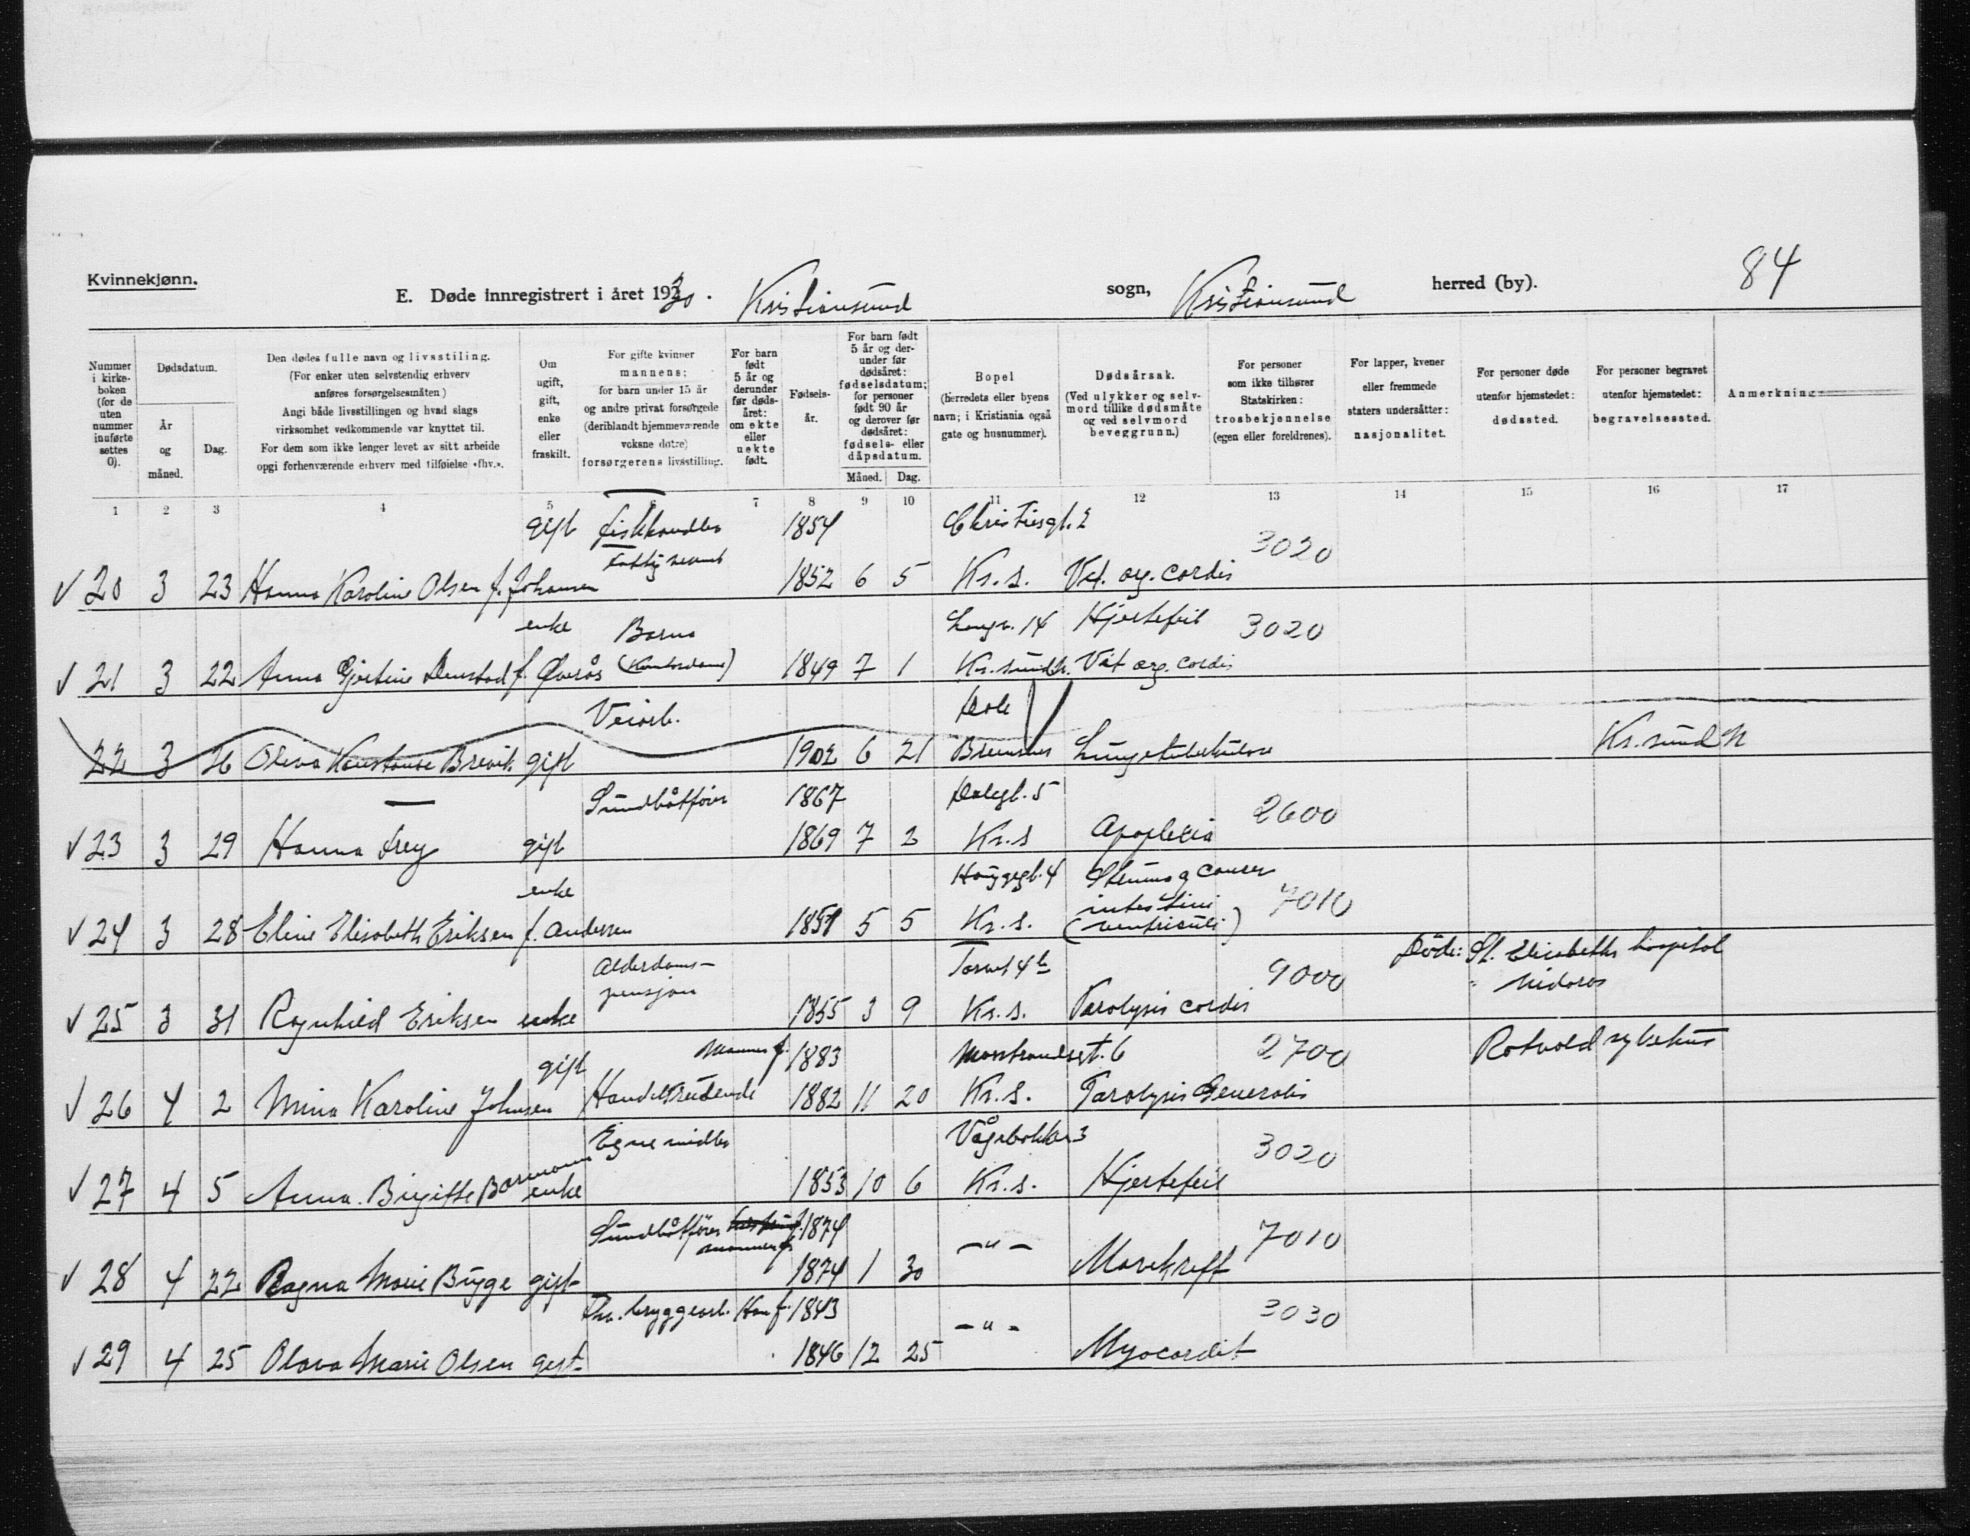 Kvinnekjønn.
84
E. Døde innregistrert i året 1930. Kristiansund sogn, Kristiansund herred (by).
Nummer i kirkeboken (for de uten nummer innførte settes 0).
Dødsdatum.
År og måned.
Dag.
Den dødes fulle navn og livsstiling.
(For enker uten selvstendig erhverv anføres forsørgelsesmåten.)
Angi både livsstillingen og hvad slags virksomhet vedkommende var knyttet til.
For dem som ikke lenger levet av sitt arbeide opgi forhenværende erhverv med tilføielse «fhv.».
Om ugift, gift, enke eller fraskilt.
For gifte kvinner mannens; for barn under 15 år og andre privat forsørgede (deriblandt hjemmeværende voksne døtre) forsørgerens livsstilling.
For barn født 5 år og derunder før dødsåret: om ekte eller uekte født.
Fødselsår.
For barn født 5 år og derunder før dødsåret: fødselsdatum; for personer født 90 år og derover før dødsåret: fødsels- eller dåpsdatum.
Måned. Dag.
Bopel (herredets eller byens navn; i Kristiania også gate og husnummer).
Dødsårsak. (Ved ulykker og selvmord tillike dødsmåte og ved selvmord beveggrunn.)
For personer som ikke tilhører Statskirken: trosbekjennelse (egen eller foreldrenes).
For lapper, kvener eller fremmede staters undersåtter: nasjonalitet.
For personer døde utenfor hjemstedet: dødssted.
For personer begravet utenfor hjemstedet: begravelsessted.
Anmerkning
1 2 3 4 5 6 7 8 9 10 11 12 13 14 15 16 17
gift fiskhandler 1854 Christiesgt. 2 3020
20 3 23 Hanna Karoline Olsen f. Johansen 1852 6 5 Kr. s. Vit. org. cordis
enke Barna Langv. 14 Hjertefeil 3020
21 3 22 Anna Gjertine f. Øverås 1849 7 1 Kr. sund N. Vit org. cordis
Veiarb. Dale
22 3 26 Oleva Konstanse Brevik gift 1902 6 21 Bremsnes Lungetuberkulose Kr. sund N
Sundbåtfører 1867 Dalegt. 5 2600
23 3 29 Hanna Frey gift 1869 7 2 Kr. s Apoplexia
enke Hauggegt. 4 cancer
24 3 28 Eline Elisabeth Eriksen f. Andersen 1851 5 5 Kr. s. intestini (ventriculi) 7010
Alderdoms-pensjon 9000 Døde: St. Elisabeths hospital Nidaros
25 3 31 Ragnhild Eriksen enke 1855 3 9 Kr. s. Paralysis cordis
gift Mannen f. 1883 6 2700 Rotvold sykehus
26 4 2 Mina Karoline Johnsen Handelsreisende 1882 11 20 Kr. s. Paralysis Generalis
Egne midler Vågebakken 3 3020
27 4 5 Anna Birgitte Bormann enke 1853 10 6 Kr. s. Hjertefeil
Sundbåtfører mannen f. 1874 7010
28 4 22 Ragna Marie Brygge gift 1874 1 30 –"– Mavekreft
bryggearb. Han f. 1843 3030
29 4 25 Olava Marie Olsen gift 1846 12 25 –"– Myocardit